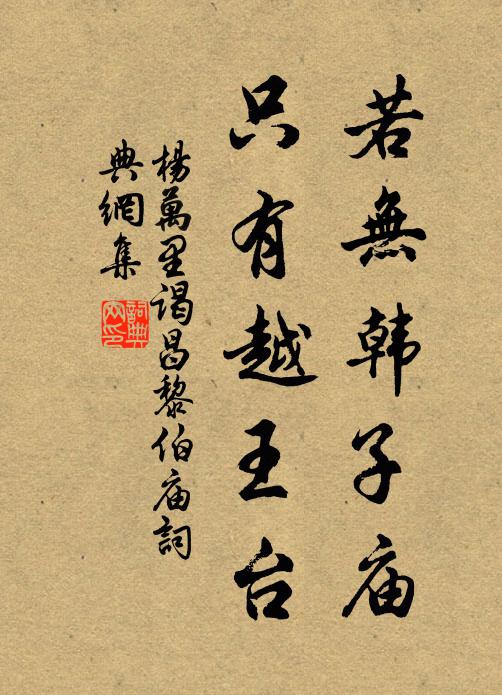 若無韩子庙
只有越王台
楊萬里谒昌黎伯庙詞
典網集
詞典网印